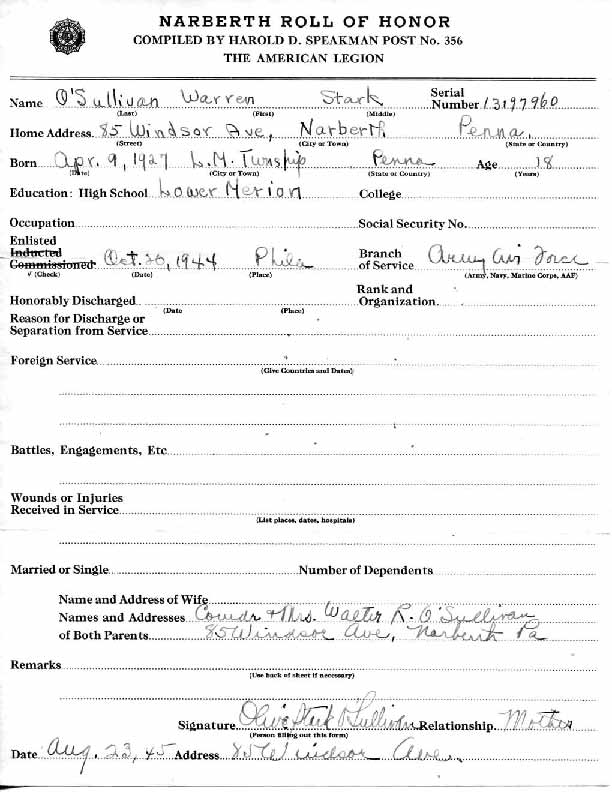 NARBERTH ROLL OF HONOR
COMPILED BY HAROLD D. SPEAKMAN POST No. 356
THE AMERICAN LEGION
Name O'Sullivan Warren Stark Serial Number 13197960
(Last) (First) (Middle)
Home Address 85 Windsor Ave, Narberth Penna.
(Street) (City or Town) (State or Country)
Born Apr. 9, 1927 L.M. Twnship Penna Age 18
(Date) (City or Town) (State or Country) (Years)
Education: High School Lower Merion College
Occupation Social Security No.
Enlisted
Inducted
Commissioned: Oct. 20, 1944 Phila Branch of Service Army Air Force
(Check) (Date) (Place) (Army, Navy, Marine Corps, AAF)
Honorably Discharged Rank and Organization
(Date (Place)
Reason for Discharge or
Separation from Service
Foreign Service
(Give Countries and Dates)
Battles, Engagements, Etc
Wounds or Injuries
Received in Service
(List places, dates, hospitals)
Married or Single Number of Dependents
Name and Address of Wife
Names and Addresses Comdr & Mrs. Walter R. O'Sullivan
of Both Parents 85 Windsor Ave, Narberth Pa
Remarks
(Use back of sheet if necessary)
Signature Olive Stark O'Sullivan Relationship Mother
(Person filling out this form)
Date Aug. 23, 45 Address 85 Windsor Ave.